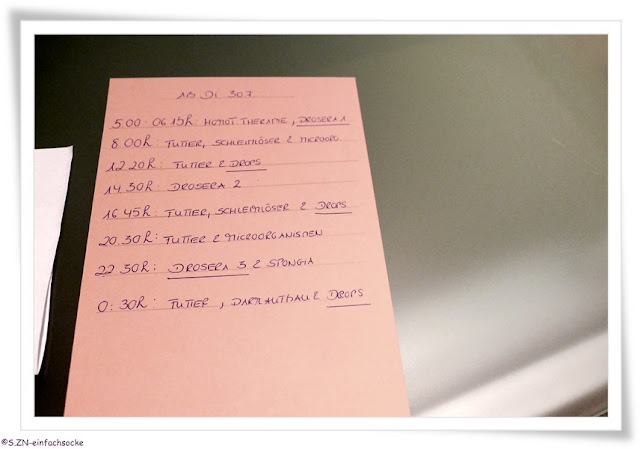 AB DI 30.7.
5.00 - 06.15h: HOMÖOT THERAPIE, DROSERA 1
8.00h: FUTTER, SCHLEIMLÖSER & MICROORG.
12.20h: FUTTER & DROPS
14.30h: DROSERA 2
16.45h: FUTTER, SCHLEIMLÖSER & DROPS
20.30h: FUTTER & MICROORGANISMEN
22.30h: DROSERA 3 & SPONGIA
0:30h: FUTTER, DARMAUFBAU & DROPS
©S.ZN-einfachsocke